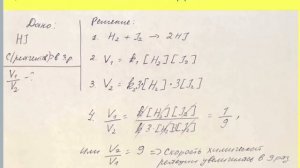 Дано:
HI
C(реагентов) в 3 р.
V₁/V₂ = ?
Решение:
1. H₂ + I₂ → 2HI
2. V₁ = k₁ [H₂][I₂]
3. V₂ = k₁3[H₂]·3[I₂]
4. V₁/V₂ = k[H₂][I₂]/k·3·[H₂][I₂] = 1/9,
или V₂/V₁ = 9 ⇒ Скорость химической
реакции увеличилась в 9 раз